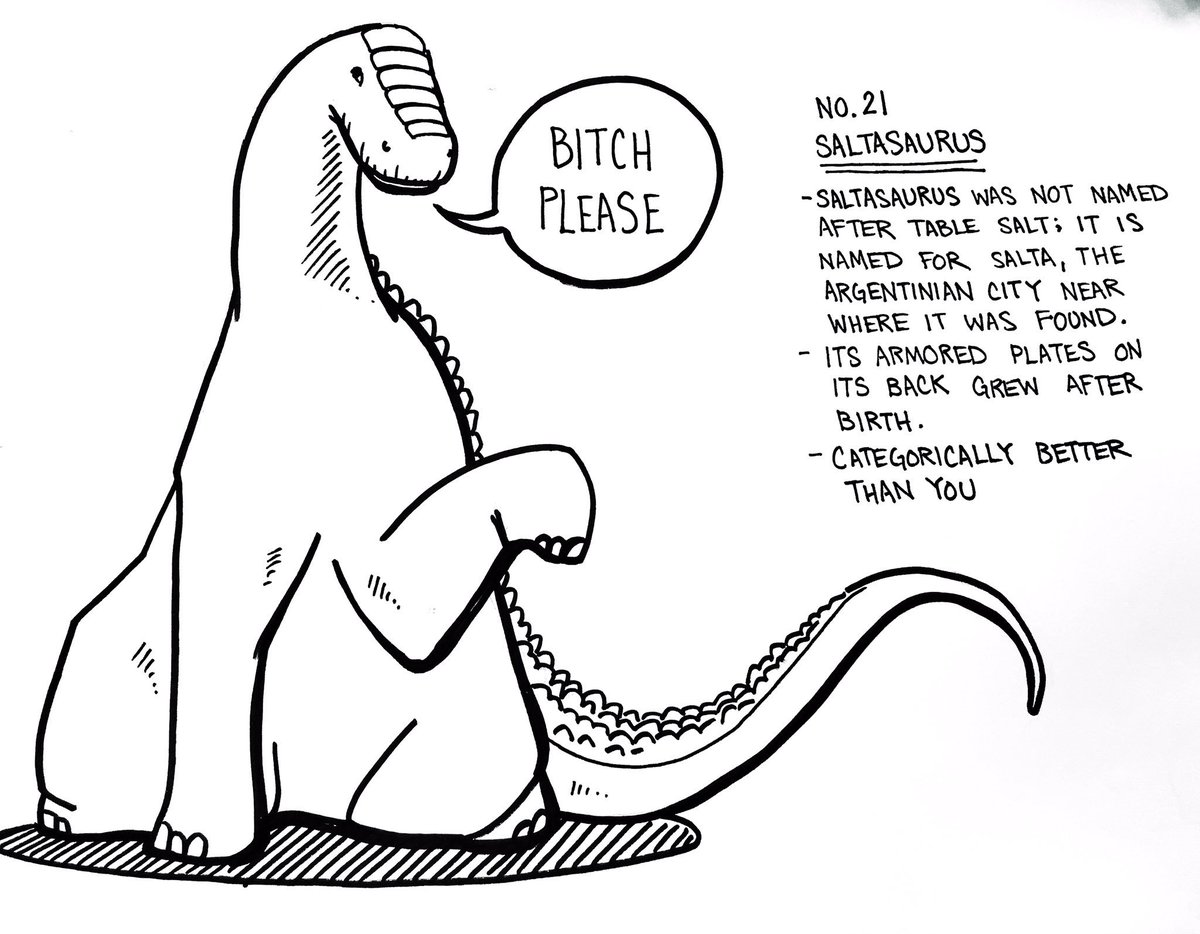 BITCH
PLEASE
NO. 21
SALTASAURUS
- SALTASAURUS WAS NOT NAMED
AFTER TABLE SALT; IT IS
NAMED FOR SALTA, THE
ARGENTINIAN CITY NEAR
WHERE IT WAS FOUND.
- ITS ARMORED PLATES ON
ITS BACK GREW AFTER
BIRTH.
- CATEGORICALLY BETTER
THAN YOU